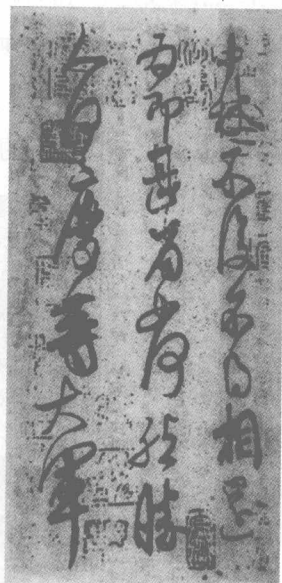 中秋不復不得相還
為即甚省如何然勝
人何慶等大軍